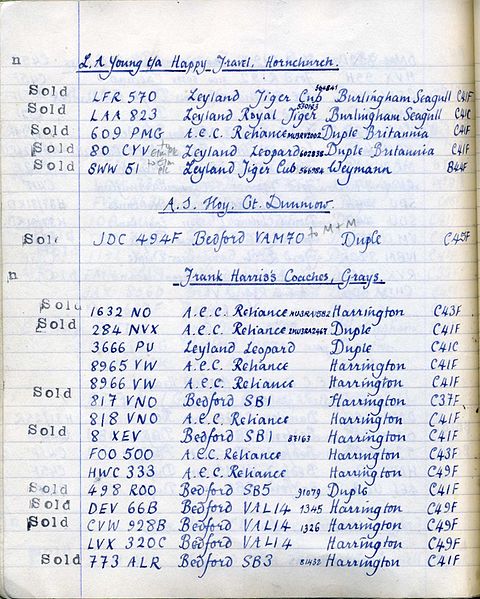 n L.A Young t/a Happy Travel, Hornchurch.
Sold LFR 570 Leyland Tiger Cub 544841 Burlingham Seagull C41F
Sold LAA 823 Leyland Royal Tiger Burlingham Seagull C41C
Sold 609 PMG A.E.C. Reliance Duple Britannia C41F
Sold 80 CYV Leyland Leopard 602838 Duple Britannia C41F
Sold SWW 51 Leyland Tiger Cub 566984 Weymann B44F
A.J. Hoy. Gt. Dunmow.
Sold JDC 494F Bedford VAM70 to M+M Duple C45F
n Frank Harris's Coaches, Grays.
Sold 1632 NO A.E.C. Reliance MU3RV1582 Harrington C43F
Sold 284 NVX A.E.C. Reliance 2MU3RA2467 Duple C41F
3666 PU Leyland Leopard Duple C41C
8965 VW A.E.C. Reliance Harrington C41F
8966 VW A.E.C. Reliance Harrington C41F
Sold 817 VNO Bedford SB1 Harrington C37F
818 VNO A.E.C. Reliance Harrington C41F
Sold 8 XEV Bedford SB1 87163 Harrington C41F
FOO 500 A.E.C. Reliance Harrington C43F
HWC 333 A.E.C. Reliance Harrington C49F
Sold 498 ROO Bedford SB5 91079 Duple C41F
Sold DEV 66B Bedford VAL14 1345 Harrington C49F
Sold CVW 928B Bedford VAL14 1326 Harrington C49F
LVX 320C Bedford VAL14 Harrington C49F
Sold 773 ALR Bedford SB3 81432 Harrington C41F